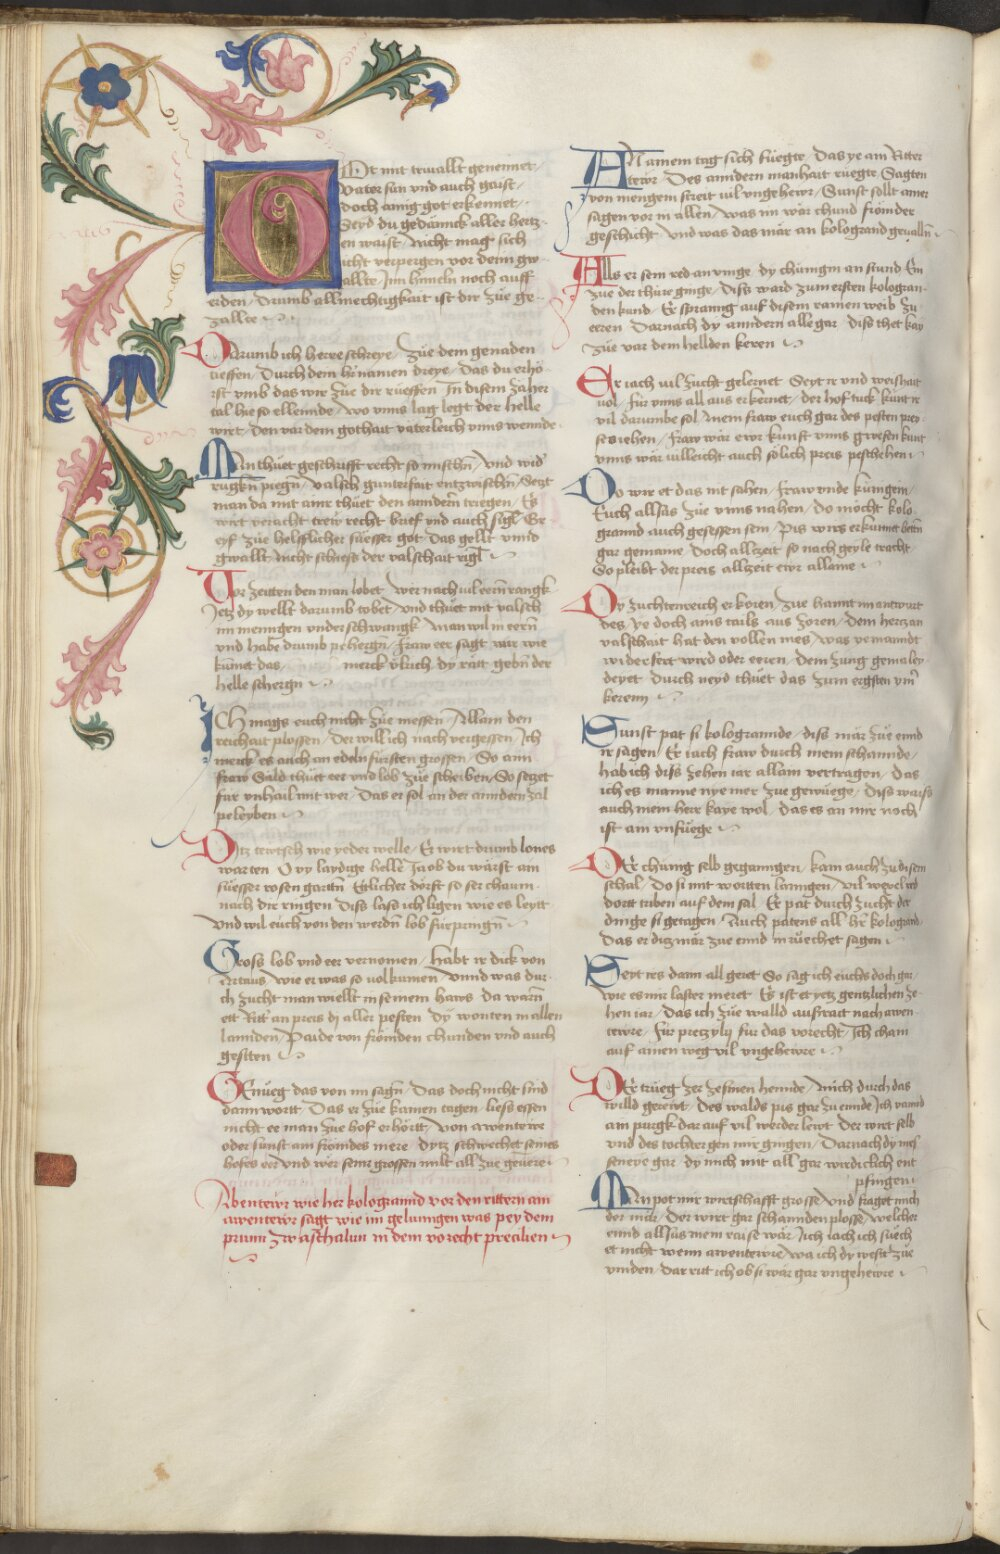 Got mit trivallt genennet
vater sun vnd auch gaist
doch ainig got erkennet
Seyd du gedännck aller hertz
en waist Nicht mag sich
icht verpergen vor deim gw
allte Jm himeln noch auff
erden Drumb allmechtigkait ist dir zue ge
zallte
Darumb ich herre schreye Zue dem genaden
tieffen Durch dein hr namen dreye Das du erhö
rst vmb das wir zue dir rüeffen In disem zäher
tal hie so ellennde wo vnns lag legt der helle
wirt Den var dein gothait vaterleich vnns wennde
Man thüet geschrifft recht so mischn vnd wid
rugkn piegn valsch guntrfait entzwischn Setzt
man da mit ainr thüet den anndern triegen Es
wirt veracht trew recht brief vnd auch sigl Gr
eif zue helfflicher süesser got Das gellt vnnd
gwallt nicht schiess der valschait rigl
Vor zeitten den man lobet wer nach vil eern rangk
Jetz dy wellt darumb tobet vnd thüet mit valsch
im menngen vnderschwangk Man wil in eern
vnd habe drumb pehergn Fraw eer sagt wir wie
kümet das merck vlrich dy ratt gebn der
helle schergn
Ich mags euch nicht zue messen Allain den
reichait plossen Der will ich nach vergessen Ich
merck es auch an edeln fürsten grossen So ann
fraw Säld thüet eer vnd lob zue scheiben So setzet
für vnhail mit wer Das er sol an der anndern zal
peleyben
Ditz tewtsch wie yeder welle Er wirt drumb lones
warten O vy laydige helle Jacob du wärst ain
süesser rosen gartn Etlicher dörft so ser chaum
nach dir ringen Diss lass ich ligen wie es leytt
vnd wil euch von den werdn lob fürpringn
Gross lob vnd eer vernomen Habt ir dick von
Artaus wie er was so volkumen vnnd was dur
ch zucht man wiellt in seinem haws da warn
ett Ritt an preis dj aller pesten Dy wonten in allen
lannden Paide von frömden chunden vnd auch
gesten
Genueg das von im sagn Das doch nicht sind
dann wortt Das er zue kainen tagen liess essen
nicht ee man zue hof erhörtt von awentewr
oder sunst ain frömdes mere Dytz schwechet seines
hofes eer vnd wer seinr grossen milt all zue gewere
Abentewr wie her kologrannd vor den rittern ain
awentewr sagt wie im gelunngen was pey dem
prunn zw aschalun in dem vorecht precilien
An ainem tag sich füegte Das ye ain Ritter
tewr Des anndern manhait ruegte Sagten
von mengem streit vil vngehewr Sunst sollt ainer
sagen vor in allen Was im wär chund frömder
geschicht vnd was das mär an kologrand gevalln
Alls er sein red an vinge dy chünigin an stund Ein
zue der thüre ginge Diss ward zum ersten kologran
den kund Er sprannng auf disem rainen weib zu
eeren Darnach dy anndern alle gar Diss thet kay
zue var dem hellden keren
Er iach vil zucht gelernet Seyt ir vnd weishait
vol für vnns all aus erkernet der hof tuck künt ir
vil darumbe sol Mein fraw euch gar des pesten prey
se siehen Fraw wär ewr kunst vnns gwesen kunt
vnns wär villeicht auch solich preis peschehen
Do wir et das nit sahen Fraw vnde künigein
Euch allsus zue vnns nahen Do möcht kolo
grannd auch gesessen sein Pis wirs erkannet hetten
gar gemaine Doch allzeit so nach geyle tracht
So pleibt der preis allzeit ewr allaine
Dy zuchtenreich erkoren Zue hannt im antwurt
des ye doch ains tails aus zoren Dein hertz an
valschait hat den vollen mes was yemanndt
wider fert wird oder eeren Dein zung gemaley
deyet durch neyd thüet das zum ergsten vm
kerenn
Sunst pat si kologrannde diss mär zue ennd
ir sagen Er iach fraw durch mein schannde
hab ich diss zehen iar allain vertragen Das
ich es manne nye mer zue gewuege Diss waiss
auch mein herr kaye wol das es an mir noch
ist ain vnfuege
Der chünig selb geganngen kam auch zu disem
schal Do si mit wortten lanngen vil wevel red
dortt triben auf dem sal Er pat durch zucht der
dinge si getagen Auch patens all her kologrand
Das er ditz mär zue ennd in ruechet sagen
Seyt irs dann all geret So sag ich euchs doch gar
wie es mir laster meret Es ist et yetz gentzlichen ze
hen iar Das ich zue walld aufraitt nach awen
tewre Für pretzylij für das vorecht Ich cham
auf ainen weg vil vngehewre
Der trueg zer zesmen hennde Mich durch das
willd gerewt Des walds pis gar zu ennde Ich vannd
ain purgk dar auf vil werder lewt Der wirt selb
vnd des tochter gen mir gingen Darnach dy mes
seneye gar dy mich mit all gar wirdicklich ent
pfingen
Man pot mir wirtschafft grosse vnd fraget mich
der mär Der wirt gar schannden plosse welcher
ennd allsus mein raise wär Ich iach ich suech
et nicht wenn awentewre wa ich dy westt zue
vinden Dar ritt ich ob si wär gar vngehewre